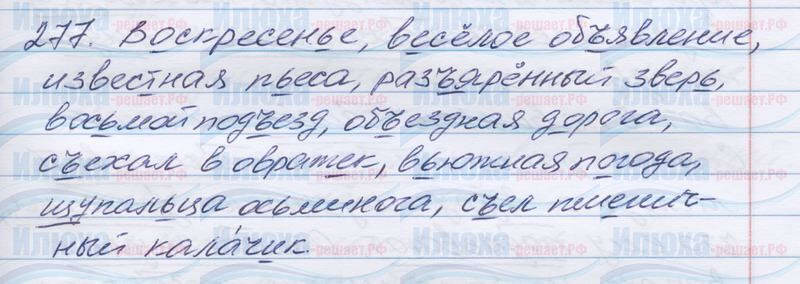 277. Воскресенье, весёлое объявление,
известная пьеса, разъярённый зверь,
восьмой подъезд, объездная дорога,
съехал в овражек, вьюжная погода,
щупальца осьминога, съел пшенич-
ный кала́чик.
Илюха-решает.РФ